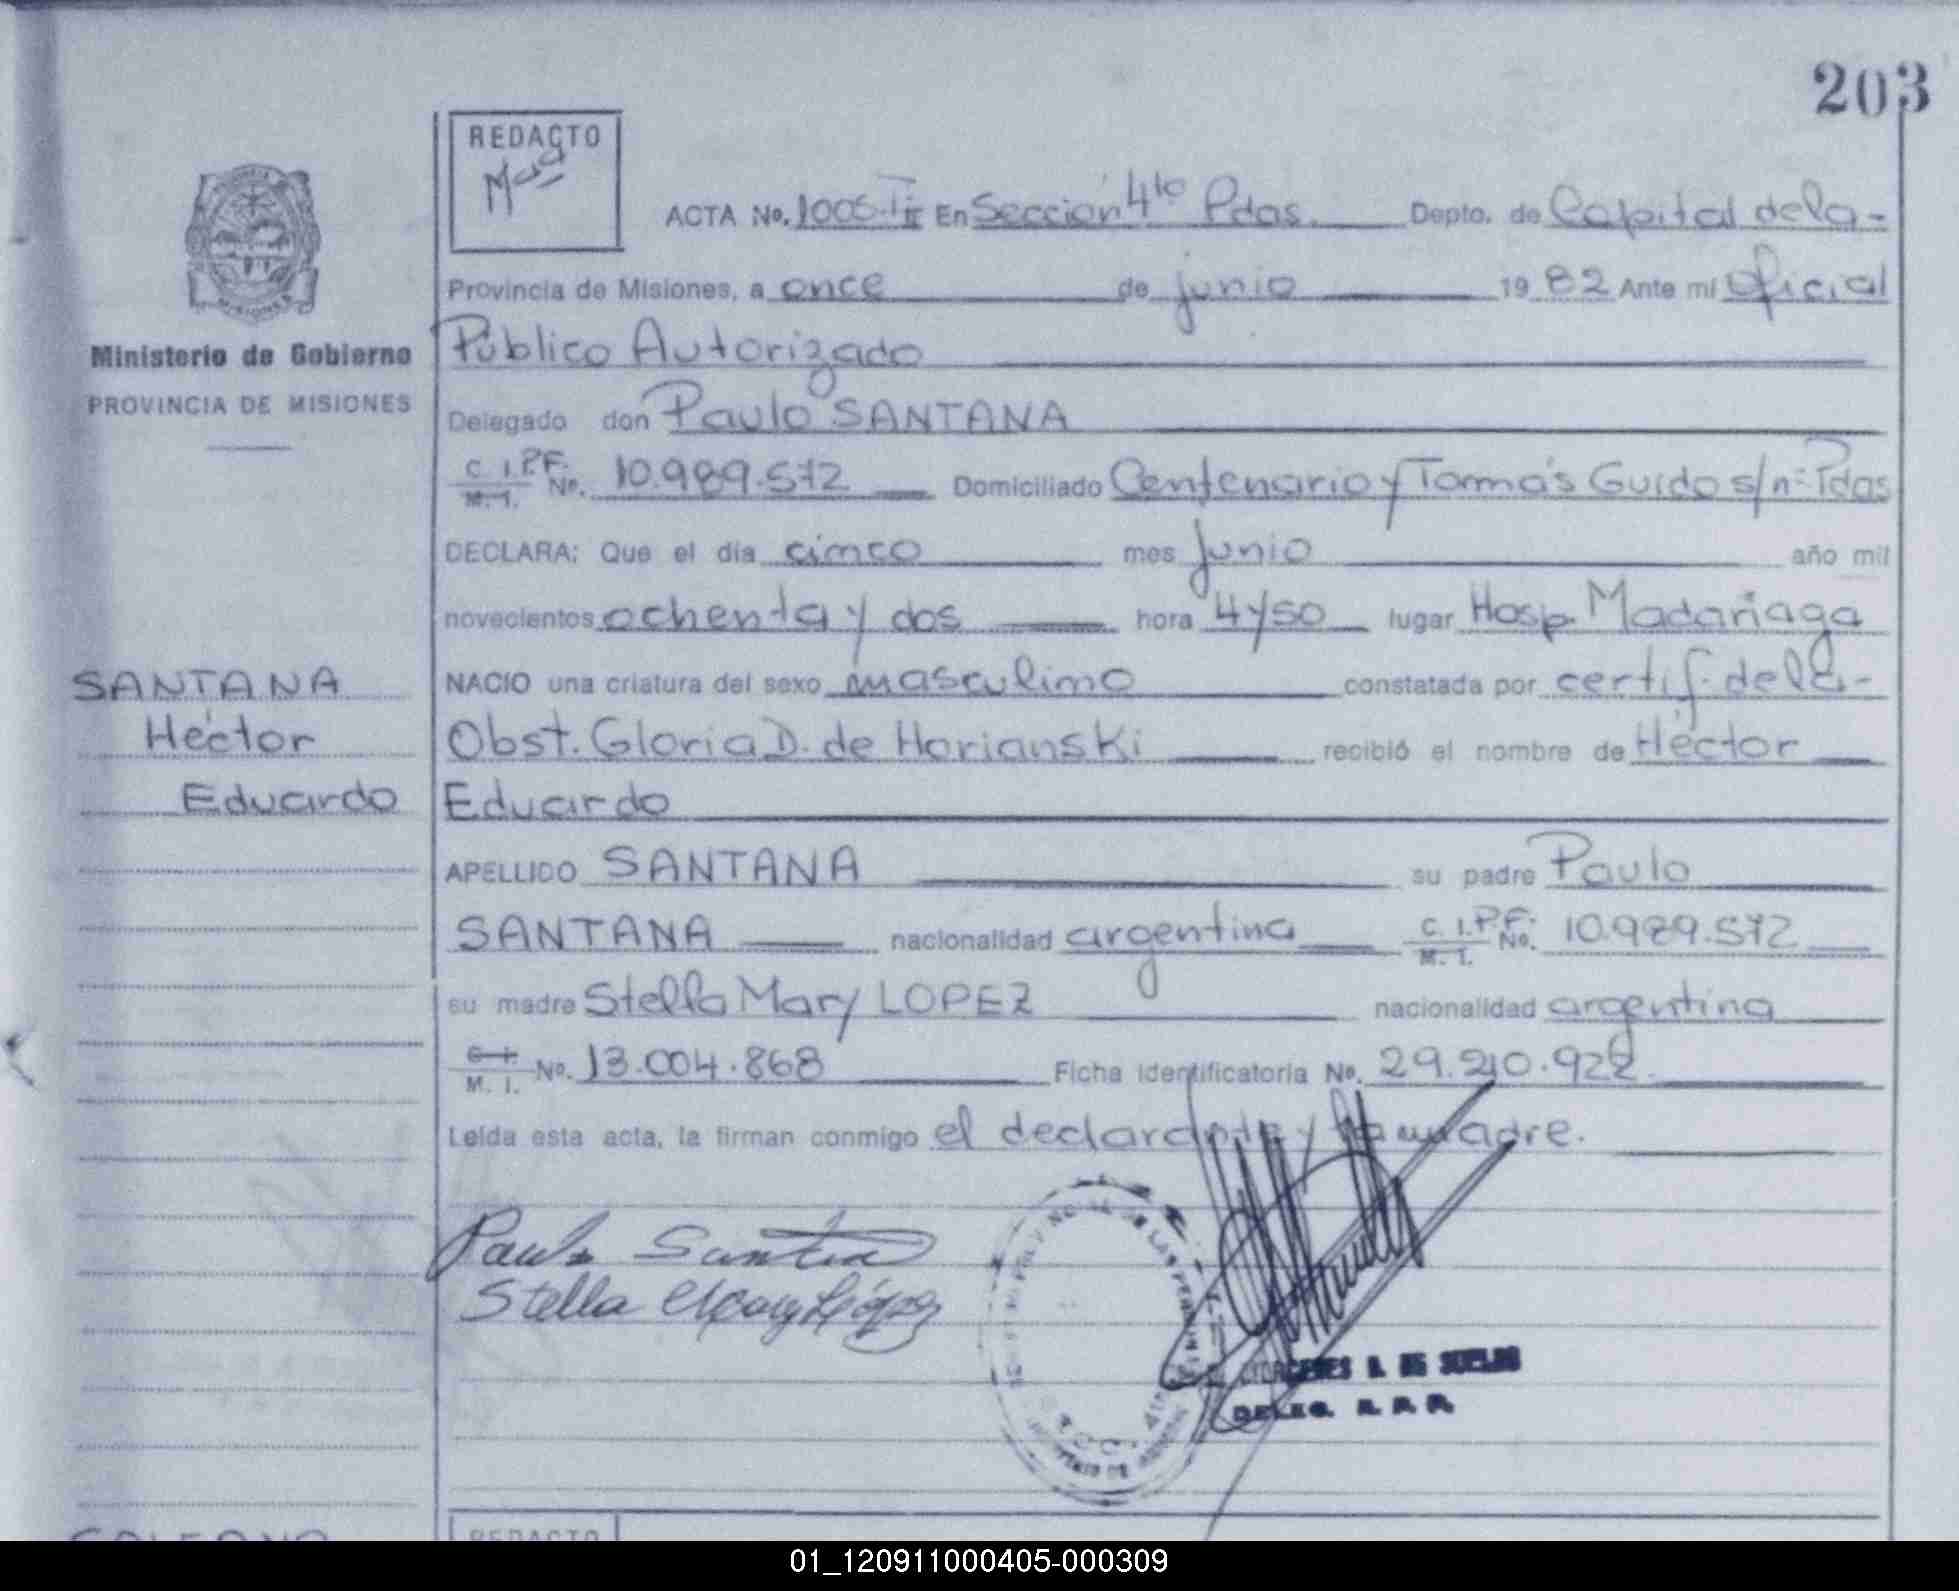 203
REDACTO
ACTA No. 1005-TII En Sección 4to Pdas. Depto. de Capital de la-
Provincia de Misiones, a once de junio 1982 Ante mi Oficial
Ministerio de Gobierno
PROVINCIA DE MISIONES
Público Autorizado
Delegado don Paulo SANTANA
C. I.P.F. M. I. No. 10.989.572 Domiciliado Centenario y Tomás Guido s/nº Pdas
DECLARA: Que el día cinco mes junio año mil
novecientos ochenta y dos hora 4 y 50 lugar Hosp. Madariaga
SANTANA
Héctor
Eduardo
NACIO una criatura del sexo masculino constatada por certif. de la-
Obst. Gloria D. de Horianski recibió el nombre de Héctor
Eduardo
APELLIDO SANTANA su padre Paulo
SANTANA nacionalidad argentina C. I.P.F. M. I. No. 10.989.572
su madre Stella Mary LOPEZ nacionalidad argentina
C. I. M. I. No. 13.004.868 Ficha identificatoria No. 29.210.922
Leída esta acta, la firman conmigo el declarante y la madre.
Paulo Santana
Stella Mary López
DELEG. R. P. P.
REDACTO
01_120911000405-000309